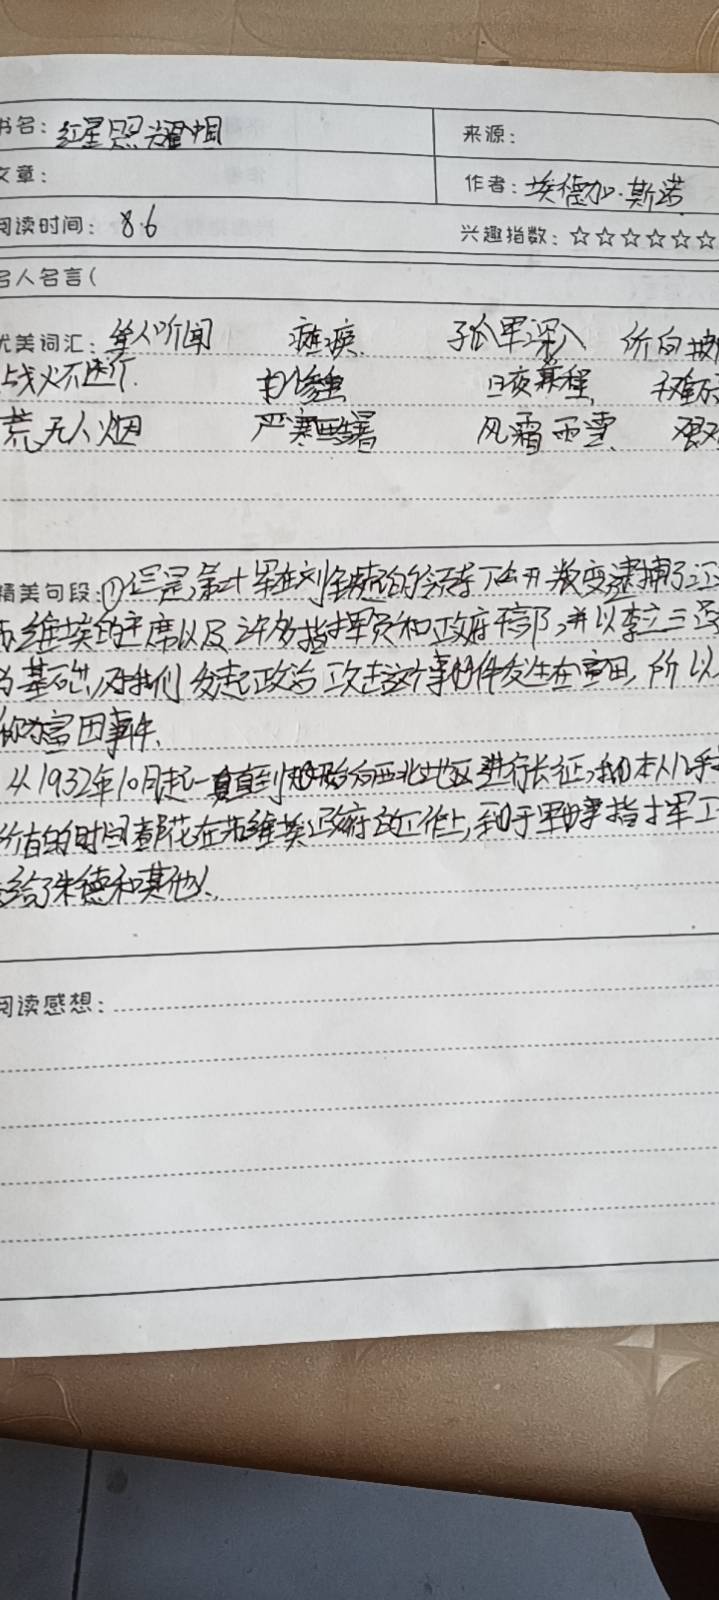 书名：红星照耀中国 来源：
文章： 作者：埃德加·斯诺
阅读时间：8.6 兴趣指数：☆☆☆☆☆☆
名人名言（
优美词汇：耸人听闻 孤军深入
战火不 日夜兼程
荒无人烟 严寒酷暑 风霜雨雪
精美句段：①但是，第二十军在刘铁超的领导下公开叛变逮捕了江
苏维埃的主席以及许多指挥员和政府干部，并以李立三
为基础，对我们发起政治攻击这个事件发生在富田，所以
称为富田事件。
从1932年10月起一直到开始向西北地区进行长征，我本人几乎
所有的时间都花在苏维埃政府的工作上，至于军事指挥工
给了朱德和其他人。
阅读感想：